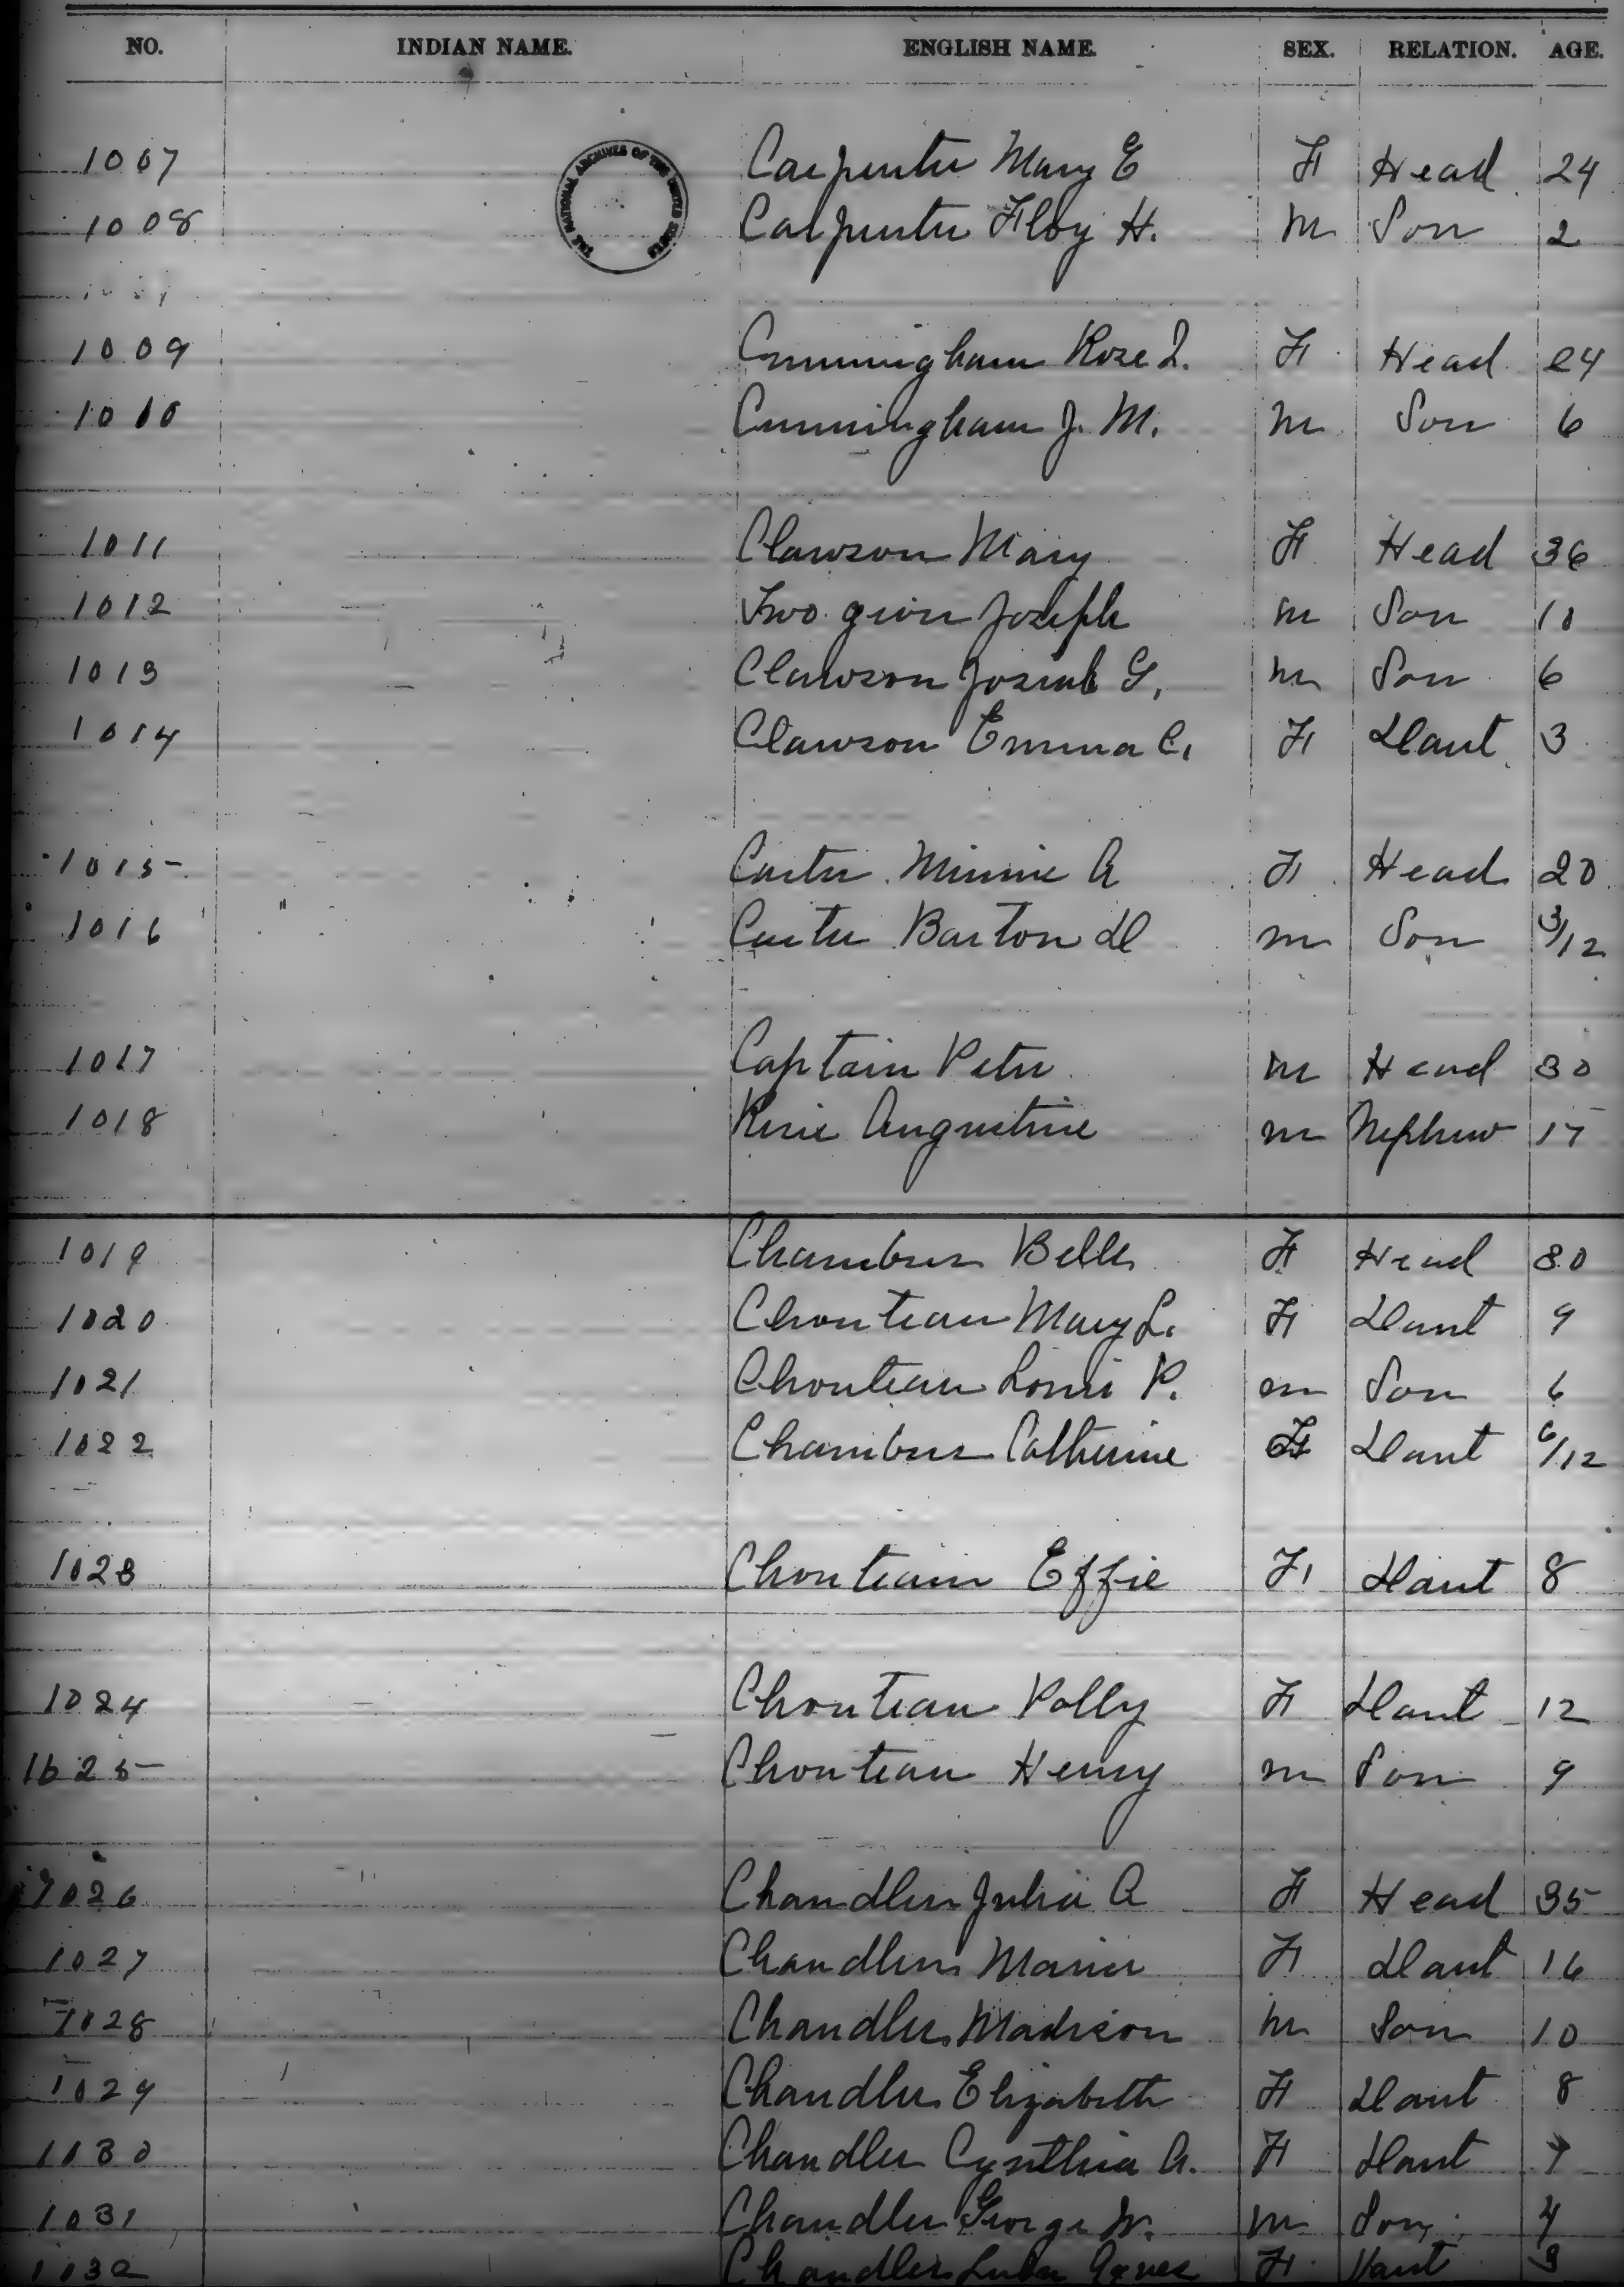 NO. INDIAN NAME. ENGLISH NAME. SEX. RELATION. AGE.
THE NATIONAL ARCHIVES OF THE UNITED STATES
1007 Carpenter Mary E F Head 24
1008 Carpenter Floy H. M Son 2
1009 Cunningham Rose F Head 24
1010 Cunningham J. M. M Son 6
1011 Clawson Mary F Head 36
1012 Joseph M Son 10
1013 Clawson Josiah G. M Son 6
1014 Clawson Emma C. F Daut 3
1015 Carter Minnie A F Head 20
1016 Carter Barton D M Son 3/12
1017 Captain Peter M Head 30
1018 Augustine M Nephew 17
1019 Chambers Belle F Head 30
1020 Chouteau Mary L. F Daut 9
1021 Chouteau Louis P. M Son 6
1022 Chambers Catherine F Daut 6/12
1023 Chouteau Effie F Daut 8
1024 Chouteau Polly F Daut 12
1025 Chouteau Henry M Son 9
1026 Chandler Julia A F Head 35
1027 Chandler F Daut 16
1028 Chandler Madison M Son 10
1029 Chandler Elizabeth F Daut 8
1030 Chandler Cynthia A. F Daut 7
1031 Chandler George W. M Son 4
1032 Chandler F Daut 3